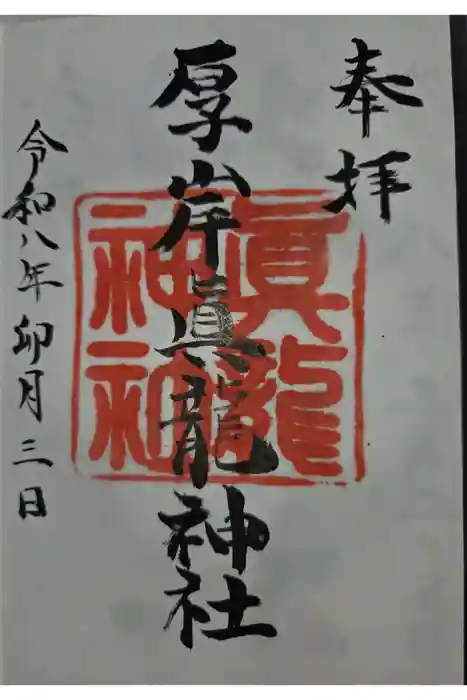 奉拝
厚岸眞龍神社
令和八年卯月三日
眞龍
神社